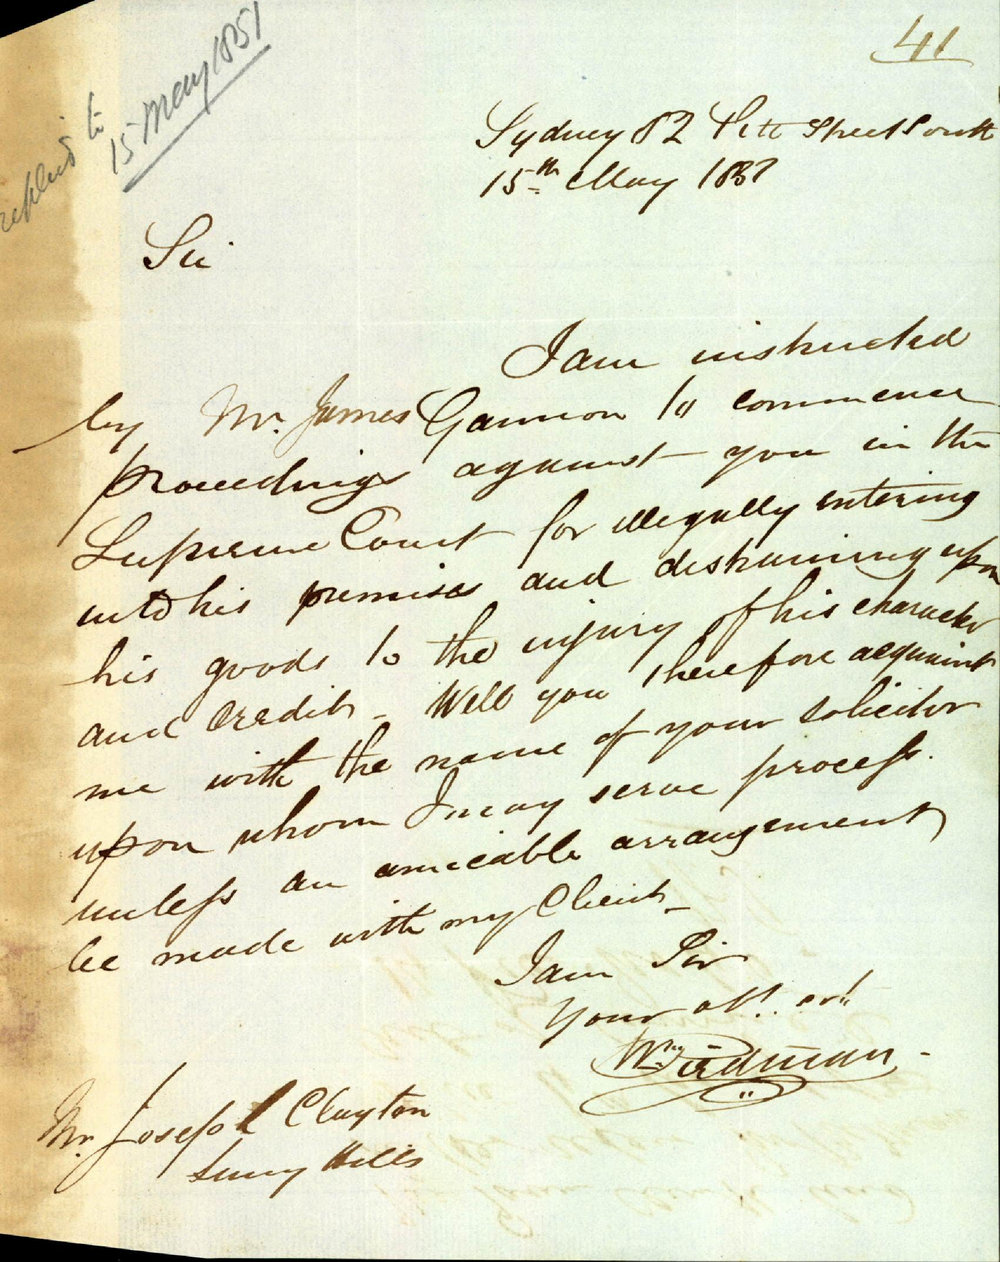 41
replied to
15 May 1851
Sydney 82 Pitt Street South
15th May 1851
Sir
I am instructed
by Mr. James Gannon to commence
proceedings against you in the
Supreme Court for illegally entering
into his premises and distraining upon
his goods to the injury of his character
and credit - Will you therefore acquaint
me with the name of your solicitor
upon whom I may serve process.
unless an amicable arrangement
be made with my Client -
I am Sir
Your obt. svt.
Wm
Mr. Joseph Clayton
Surry Hills